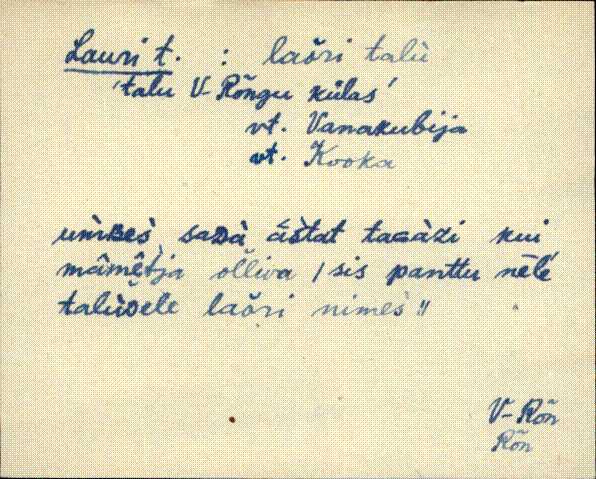 Lauri t. : laŏri talù
'talu V-Rõngu külas'
vt. Vanakubija
vt. Kooka
sadà āštat tagàzi kui
mâmêtja olliva / sis panttu nēle
talùdele laŏri nimes "
V-Rõn
Rõn